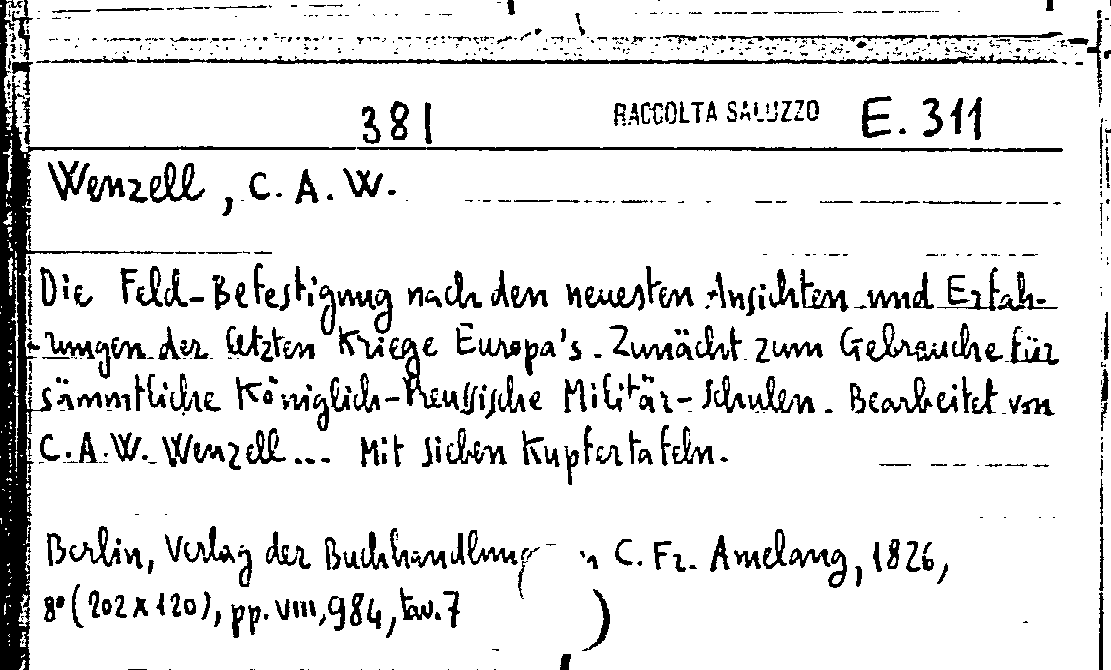 381 RACCOLTA SALUZZO E. 311
Wenzell, C. A. W.
Die Feld-Befestigung nach den neuesten Ansichten und Erfah-
rungen der letzten Kriege Europa's. Zunächt zum Gebrauche für
sämmtliche Königlich-Preussische Militär-Schulen. Bearbeitet von
C.A.W. Wenzell... Mit sieben Kupfertafeln.
Berlin, Verlag der Buchhandlung C. Fr. Amelang, 1826,
8° (202 x 120), pp. VIII, 984, tav. 7